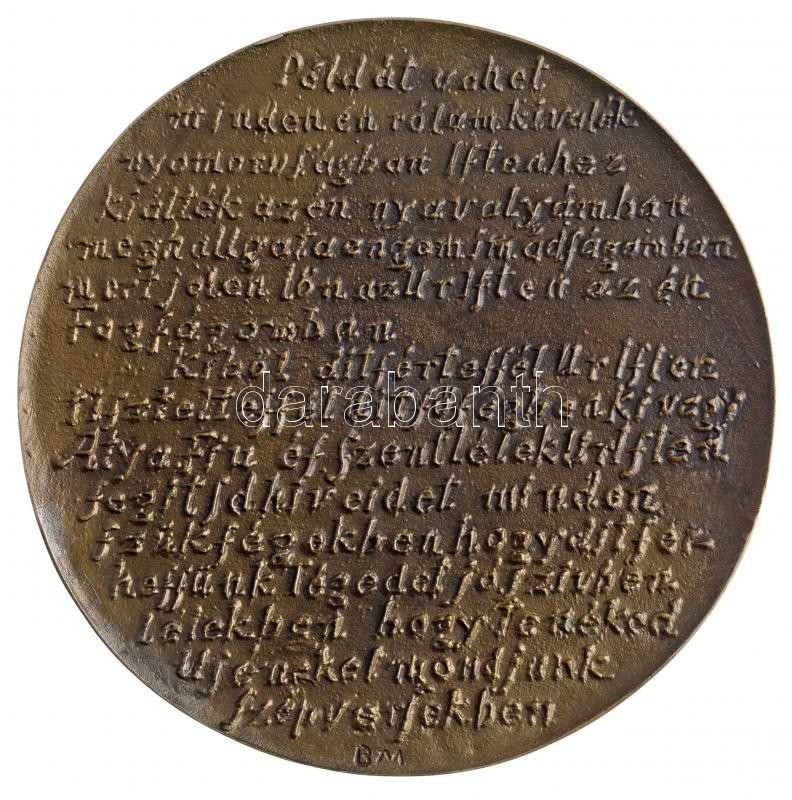 Példát vehet
minden én rólam kivalék
nyomoruſágban Iſtenhez
kiálték az én nyavalyámban
meghallgata engem imádságomban
mert jelen lőn az Ur Iſten az én
Fogſágomban
Kiből ditſérteſſél Ur Iſten
tiszteltessél
darabanth
Atya Fiu éſ ſzentlélek Ur Iſten
ſegitſd hiveidet minden
ſzükſégekben hogy ditſér
heſſünk Tégedet jó ſzivben
lélekben hogy Tenéked
Uj éneket mondjunk
ſzép verſekben
BM